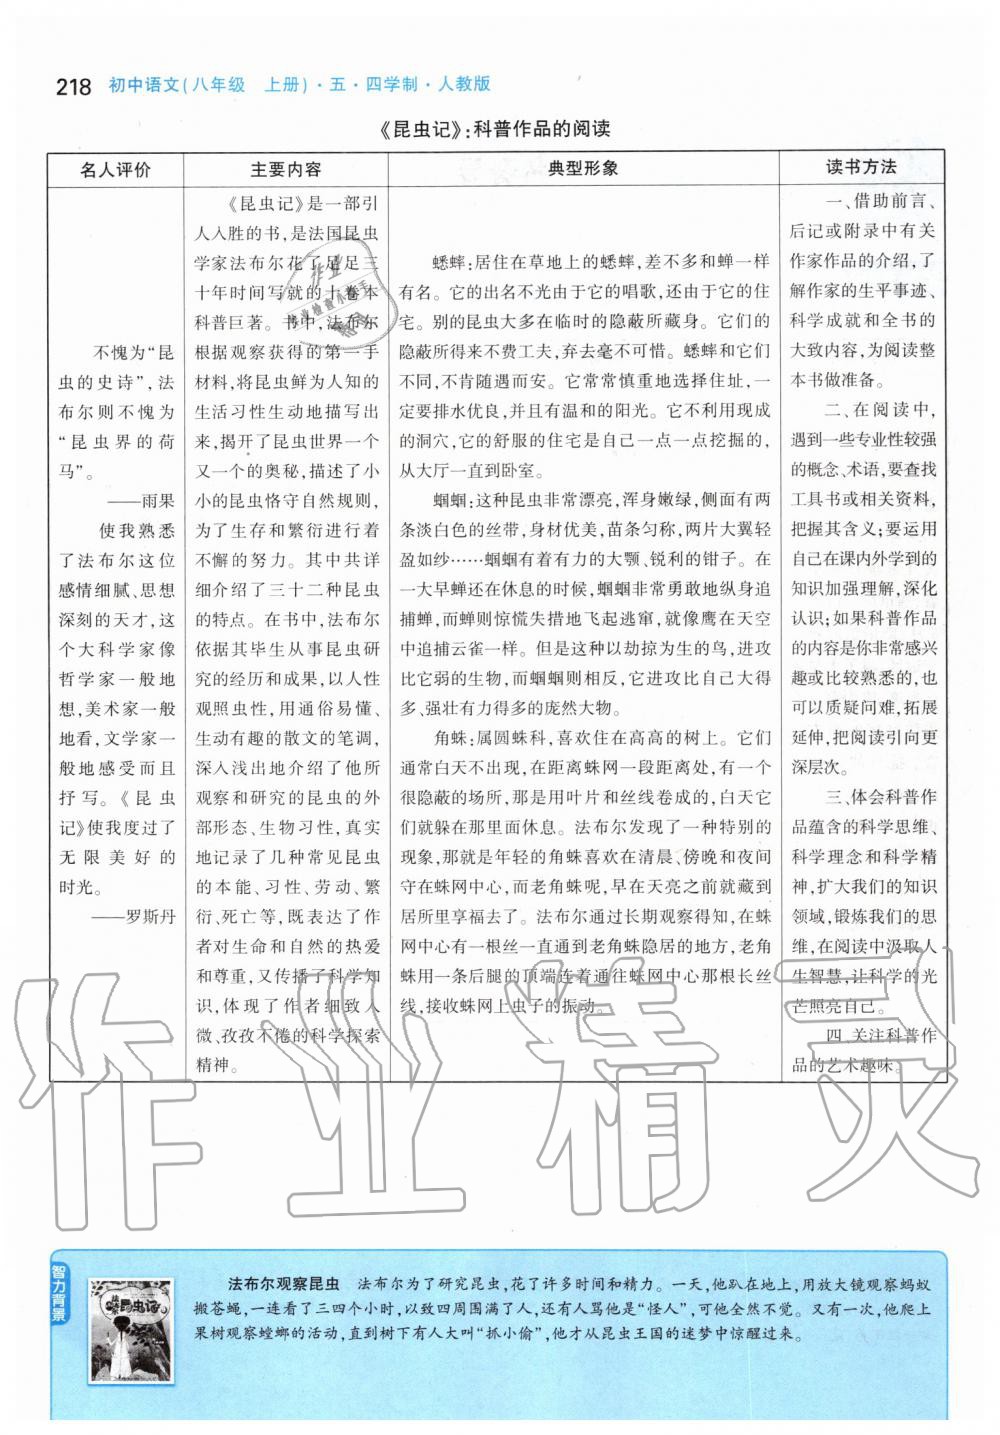 218 初中语文(八年级 上册)·五·四学制·人教版
《昆虫记》:科普作品的阅读
名人评价
不愧为“昆
虫的史诗”,法
布尔则不愧为
“昆虫界的荷
马”。
——雨果
使我熟悉
了法布尔这位
感情细腻、思想
深刻的天才,这
个大科学家像
哲学家一般地
想,美术家一般
地看,文学家一
般地感受而且
抒写。《昆虫
记》使我度过了
无限美好的
时光。
——罗斯丹
主要内容
《昆虫记》是一部引
人入胜的书,是法国昆虫
学家法布尔花了足足三
十年时间写就的十卷本
科普巨著。书中,法布尔
根据观察获得的第一手
材料,将昆虫鲜为人知的
生活习性生动地描写出
来,揭开了昆虫世界一个
又一个的奥秘,描述了小
小的昆虫恪守自然规则,
为了生存和繁衍进行着
不懈的努力。其中共详
细介绍了三十二种昆虫
的特点。在书中,法布尔
依据其毕生从事昆虫研
究的经历和成果,以人性
观照虫性,用通俗易懂、
生动有趣的散文的笔调,
深入浅出地介绍了他所
观察和研究的昆虫的外
部形态、生物习性,真实
地记录了几种常见昆虫
的本能、习性、劳动、繁
衍、死亡等,既表达了作
者对生命和自然的热爱
和尊重,又传播了科学知
识,体现了作者细致入
微、孜孜不倦的科学探索
精神。
典型形象
蟋蟀:居住在草地上的蟋蟀,差不多和蝉一样
有名。它的出名不光由于它的唱歌,还由于它的住
宅。别的昆虫大多在临时的隐蔽所藏身。它们的
隐蔽所得来不费工夫,弃去毫不可惜。蟋蟀和它们
不同,不肯随遇而安。它常常慎重地选择住址,一
定要排水优良,并且有温和的阳光。它不利用现成
的洞穴,它的舒服的住宅是自己一点一点挖掘的,
从大厅一直到卧室。
蝈蝈:这种昆虫非常漂亮,浑身嫩绿,侧面有两
条淡白色的丝带,身材优美,苗条匀称,两片大翼轻
盈如纱……蝈蝈有着有力的大颚、锐利的钳子。在
一大早蝉还在休息的时候,蝈蝈非常勇敢地纵身追
捕蝉,而蝉则惊慌失措地飞起逃窜,就像鹰在天空
中追捕云雀一样。但是这种以劫掠为生的鸟,进攻
比它弱的生物,而蝈蝈则相反,它进攻比自己大得
多、强壮有力得多的庞然大物。
角蛛:属圆蛛科,喜欢住在高高的树上。它们
通常白天不出现,在距离蛛网一段距离处,有一个
很隐蔽的场所,那是用叶片和丝线卷成的,白天它
们就躲在那里面休息。法布尔发现了一种特别的
现象,那就是年轻的角蛛喜欢在清晨、傍晚和夜间
守在蛛网中心,而老角蛛呢,早在天亮之前就藏到
居所里享福去了。法布尔通过长期观察得知,在蛛
网中心有一根丝一直通到老角蛛隐居的地方,老角
蛛用一条后腿的顶端连着通往蛛网中心那根长丝
线,接收蛛网上虫子的振动。
读书方法
一、借助前言、
后记或附录中有关
作家作品的介绍,了
解作家的生平事迹、
科学成就和全书的
大致内容,为阅读整
本书做准备。
二、在阅读中,
遇到一些专业性较强
的概念、术语,要查找
工具书或相关资料,
把握其含义;要运用
自己在课内外学到的
知识加强理解,深化
认识;如果科普作品
的内容是你非常感兴
趣或比较熟悉的,也
可以质疑问难,拓展
延伸,把阅读引向更
深层次。
三、体会科普作
品蕴含的科学思维、
科学理念和科学精
神,扩大我们的知识
领域,锻炼我们的思
维,在阅读中汲取人
生智慧,让科学的光
芒照亮自己。
四、关注科普作
品的艺术趣味。
作业精灵
智力背景
昆虫记
法布尔观察昆虫 法布尔为了研究昆虫,花了许多时间和精力。一天,他趴在地上,用放大镜观察蚂蚁
搬苍蝇,一连看了三四个小时,以致四周围满了人,还有人骂他是“怪人”,可他全然不觉。又有一次,他爬上
果树观察螳螂的活动,直到树下有人大叫“抓小偷”,他才从昆虫王国的迷梦中惊醒过来。